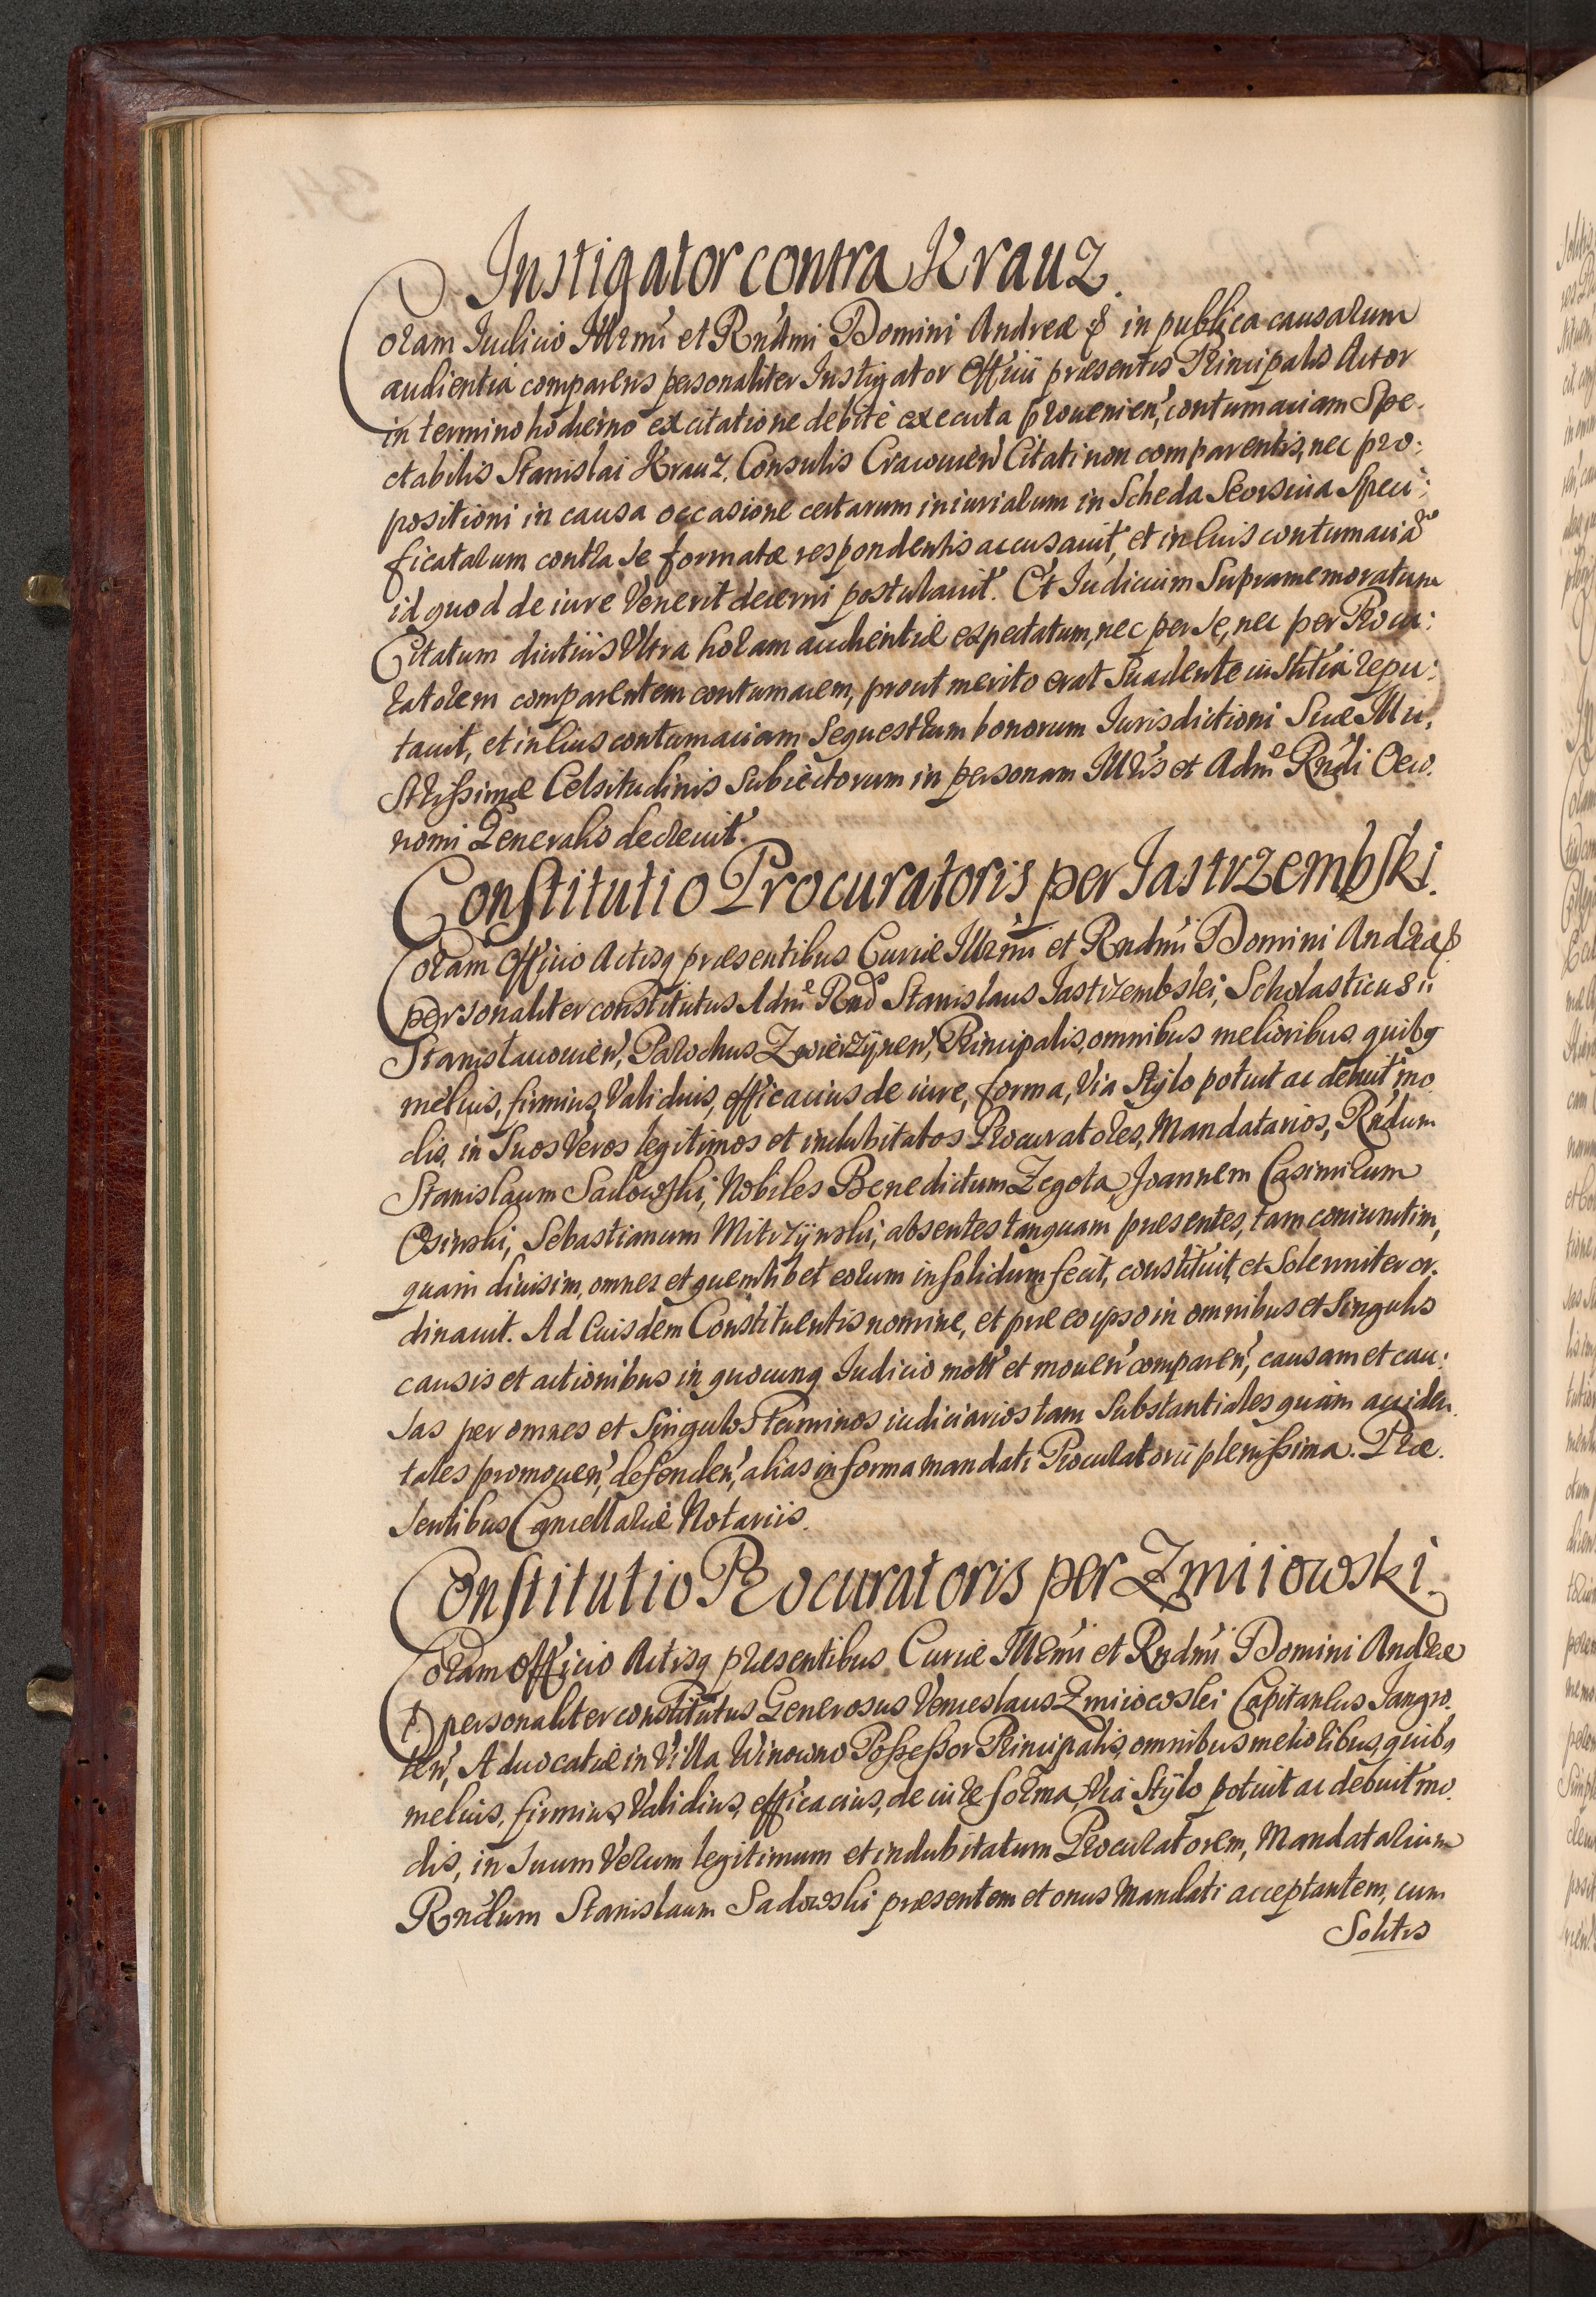 Instigator contra Krauz.
Coram Iudicio Illrmi et Rndmi Domini Andreæ ꝑ in publica causarum
audientia comparens personaliter Instigator Officii præsentis Principalis Actor
in termino hodierno ex citatione debitè executa prouenien', contumaciam Spe-
ctabilis Stanislai Krauz, Consulis Cracouien' Citati non comparentis, nec pro:
positioni in causa occasione certarum iniuriarum in Scheda Seorsiua Speci:
ficatarum contra se formatæ respondentis accusauit, et in eius contumaciã
id quod de iure Venerit decerni postulauit. Et Iudicium Supramemoratum
Citatum diutius Vltra horam audientiæ expectatum, nec per se, nec per Procu:
ratorem comparentem contumacem, prout merito erat Suadente iustitia repu:
tauit, et in eius contumaciam Sequestrum bonorum Iurisdictioni Suæ Illu:
strissimæ Celsitudinis Subiectorum in personam Illris et Adm Rndi Oeco.
nomi Generalis decreuit.
Constitutio Procuratoris per Jastrzembski.
Coram Officio Actisq præsentibus Curiæ Illrmi et Rndmi Domini Andreæ ꝑ
personaliter constitutus Adm Rnds Stanislaus Jastrzembski, Scholasticus
Stanislauouien', Parochus Zwierzynen', Principalis, omnibus melioribus quibq
melius, firmius, Validius, efficacius de iure, forma, Via Stylo potuit ac debuit mo
dis, in Suos Veros legitimos et indubitatos Procuratores, Mandatarios, Rndum
Stanislaum Sadowski, Nobiles Benedictum Zegota, Joannem Casimirum
Osinski, Sebastianum Mitrzynski, absentes tanquam præsentes, tam coniunctim,
quam diuisim, omnes et quemlibet eorum in solidum fecit, constituit, et Solenniter or.
dinauit. Ad Euisdem Constituentis nomine, et præ eo ipso in omnibus et Singulis
causis et actionibus in quocunq Iudicio mott' et mouen' comparen', causam et cau:
sas per omnes et Singulos terminos iudiciarios tam Substantiales quàm acciden.
tales promouen', defenden', alias in forma mandati Procuratorii plenissima. Præ.
sentibus Cancellariæ Notariis.
Constitutio Procuratoris per Zmiiowski.
Coram Officio Actisq præsentibus Curiæ Illrmi et Rndmi Domini Andreæ
ꝑ personaliter constitutus Generosus Venceslaus Zmiiowski Capitaneus Jangro.
ten', Aduocatiæ in Villa Winowno Possessor Principalis, omnibus melioribus, quibq
melius, firmius, Validius, efficacius, de iure forma, Via Stylo potuit ac debuit mo.
dis, in Suum Verum legitimum et indubitatum Procuratorem, Mandatarium
Rndum Stanislaum Sadowski præsentem et onus Mandati acceptantem, cum
Solitis